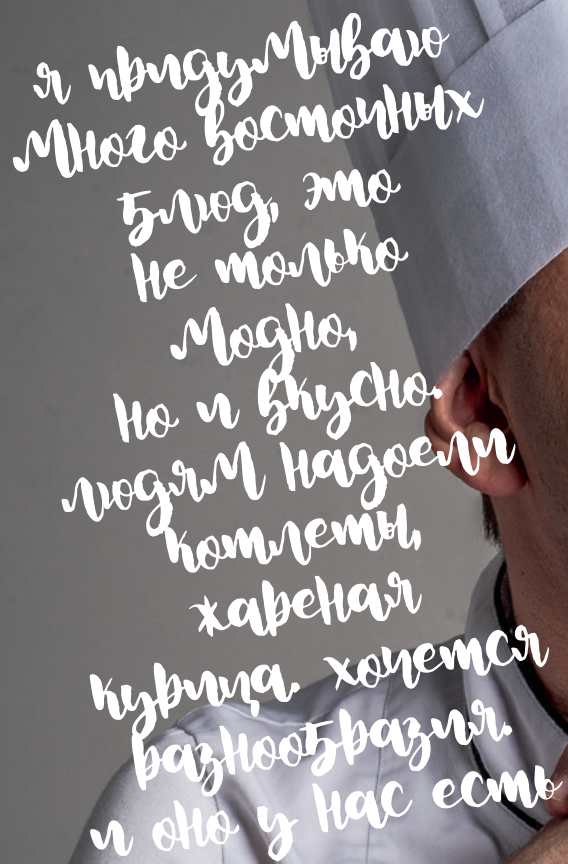 я придумываю
много восточных
блюд, это
не только
модно,
но и вкусно.
людям надоели
котлеты,
жареная
курица. хочется
разнообразия.
и оно у нас есть